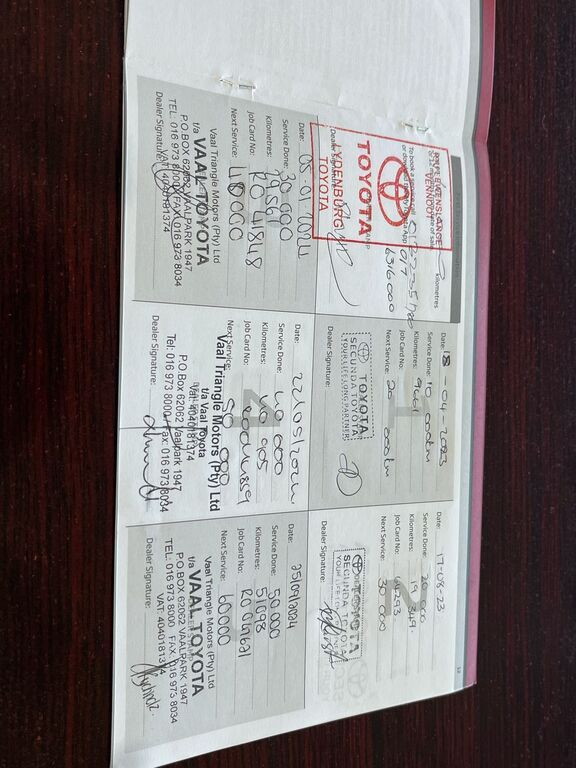 kilometres
To book a service call
or download the MyToyota App
LYDENBURG
TOYOTA
TOYOTA
Dealer Signature:
Date: 18-04-2023
Service Done: 10 000km
Kilometres:
Job Card No:
Next Service: 20 000km
TOYOTA
SECUNDA TOYOTA
YOUR LIFE LONG PARTNER
Dealer Signature:
Date: 17-08-23
Service Done: 20 000
Kilometres: 19 349
Job Card No:
Next Service: 30 000
TOYOTA
SECUNDA TOYOTA
Dealer Signature:
Date: 05-01-2024
Service Done: 30 000
Kilometres: 29 561
Job Card No: RO 41848
Next Service: 40 000
Vaal Triangle Motors (Pty) Ltd
t/a VAAL TOYOTA
P.O BOX 62062 VAALPARK 1947
TEL: 016 973 8000 FAX 016 973 8034
VAT: 4040181374
Dealer Signature:
Date: 22/05/2024
Service Done: 40 000
Kilometres:
Job Card No:
Next Service:
Vaal Triangle Motors (Pty) Ltd
t/a Vaal Toyota
Vat: 4040181374
P O Box 62062 Vaalpark 1947
Tel: 016 973 8000 Fax: 016 973 8034
Dealer Signature:
Date: 25/09/2024
Service Done: 50 000
Kilometres: 51098
Job Card No:
Next Service: 60 000
Vaal Triangle Motors (Pty) Ltd
t/a VAAL TOYOTA
P.O BOX 62062 VAALPARK 1947
TEL: 016 973 8000 FAX. 016 973 8034
VAT: 4040181374
Dealer Signature: